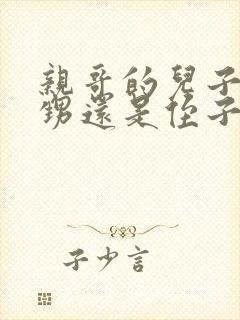 親哥的兒子
甥還是侄子
子少言